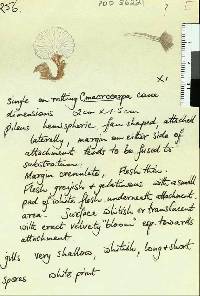 256.
PDD 38221
x1
Single on rotting C. macrocarpa cone
dimensions 2cm x 1.5cm
pileus hemispheric fan shaped, attached
laterally, margin on either side of
attachment tends to be fused to
substratum.
Margin crenulate, Flesh thin.
Flesh greyish & gelatinous with a small
pad of white flesh underneath attachment
area. Surface whitish or translucent
with erect velvety "bloom" esp. towards
attachment
gills very shallow, whitish, long & short
spores white print